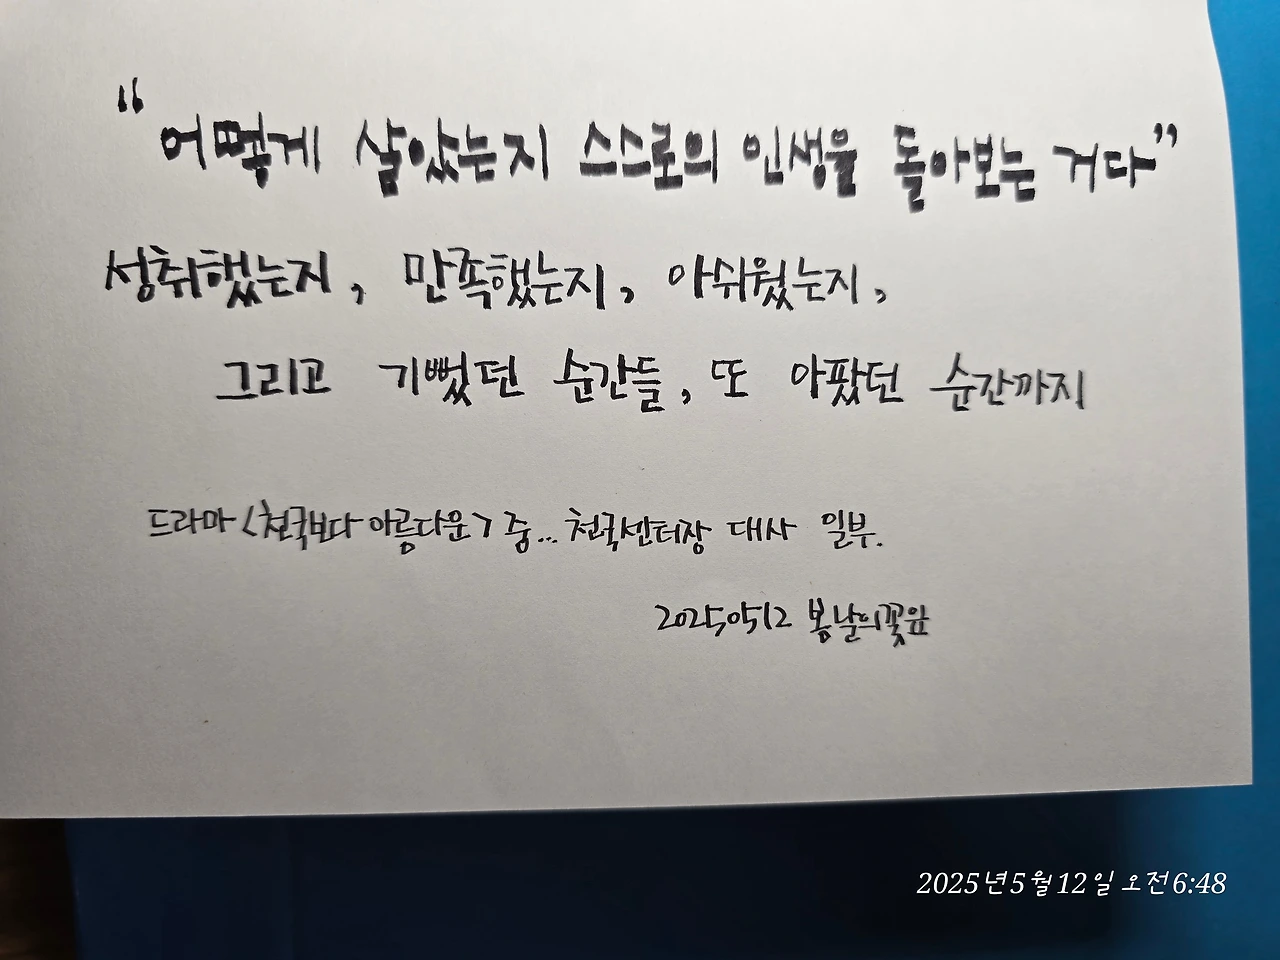 “어떻게 살았는지 스스로의 인생을 돌아보는 거다”
성취했는지, 만족했는지, 아쉬웠는지,
그리고 기뻤던 순간들, 또 아팠던 순간까지
드라마 <천국보다 아름다운> 중... 천국센터장 대사 일부.
20250512 봄날의꽃잎
2025년 5월 12일 오전 6:48